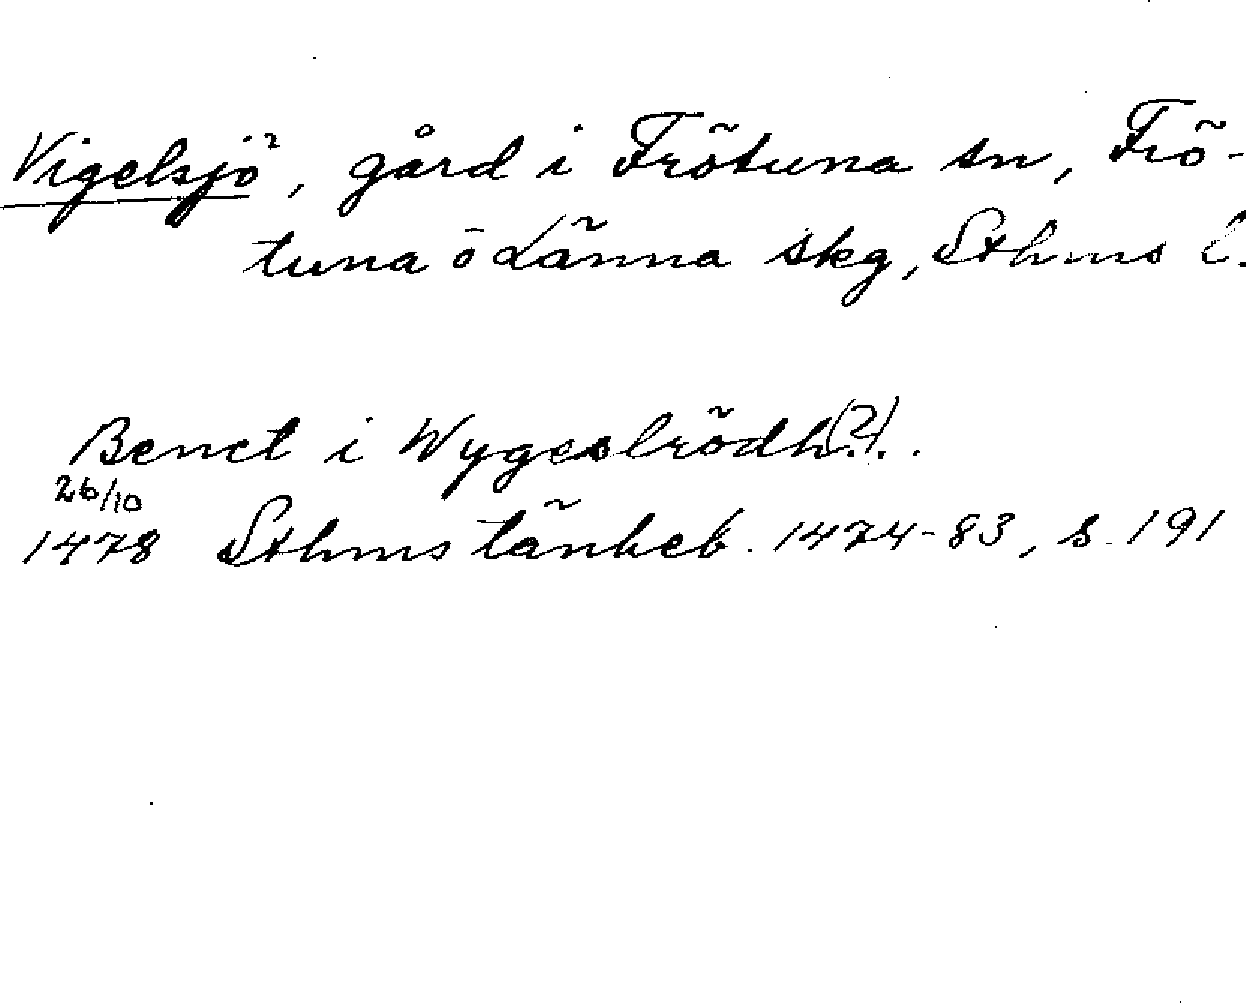 Vigelsjö, gård i Frötuna sn, Frö-
tuna o Länna skg, Sthms l.
Benct i Wygeslrödh(?)..
26/10
1478 Sthms tänkeb. 1474-83, s. 191